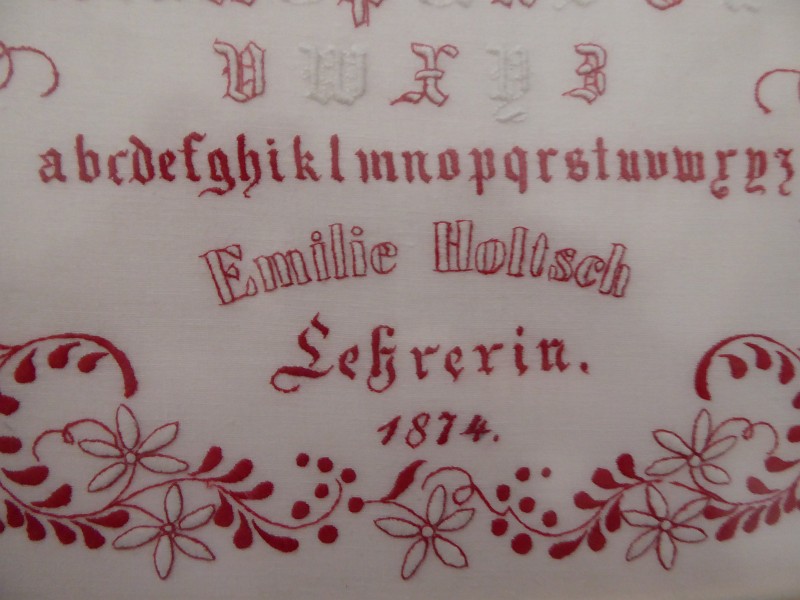 V W X Y Z
abcdefghiklmnopqrstuvwxyz
Emilie Holtsch
Lehrerin.
1874.